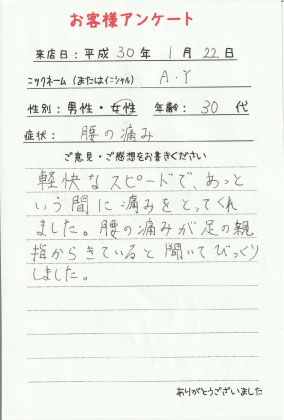 お客様アンケート
来店日：平成 30 年 1 月 22 日
ニックネーム（またはイニシャル） A.Y
性別：男性・女性 年齢：30 代
症状： 腰の痛み
ご意見・ご感想をお書きください
軽快なスピードで、あっと
いう間に痛みをとってくれ
ました。腰の痛みが足の親
指からきていると聞いてびっくり
しました。
ありがとうございました